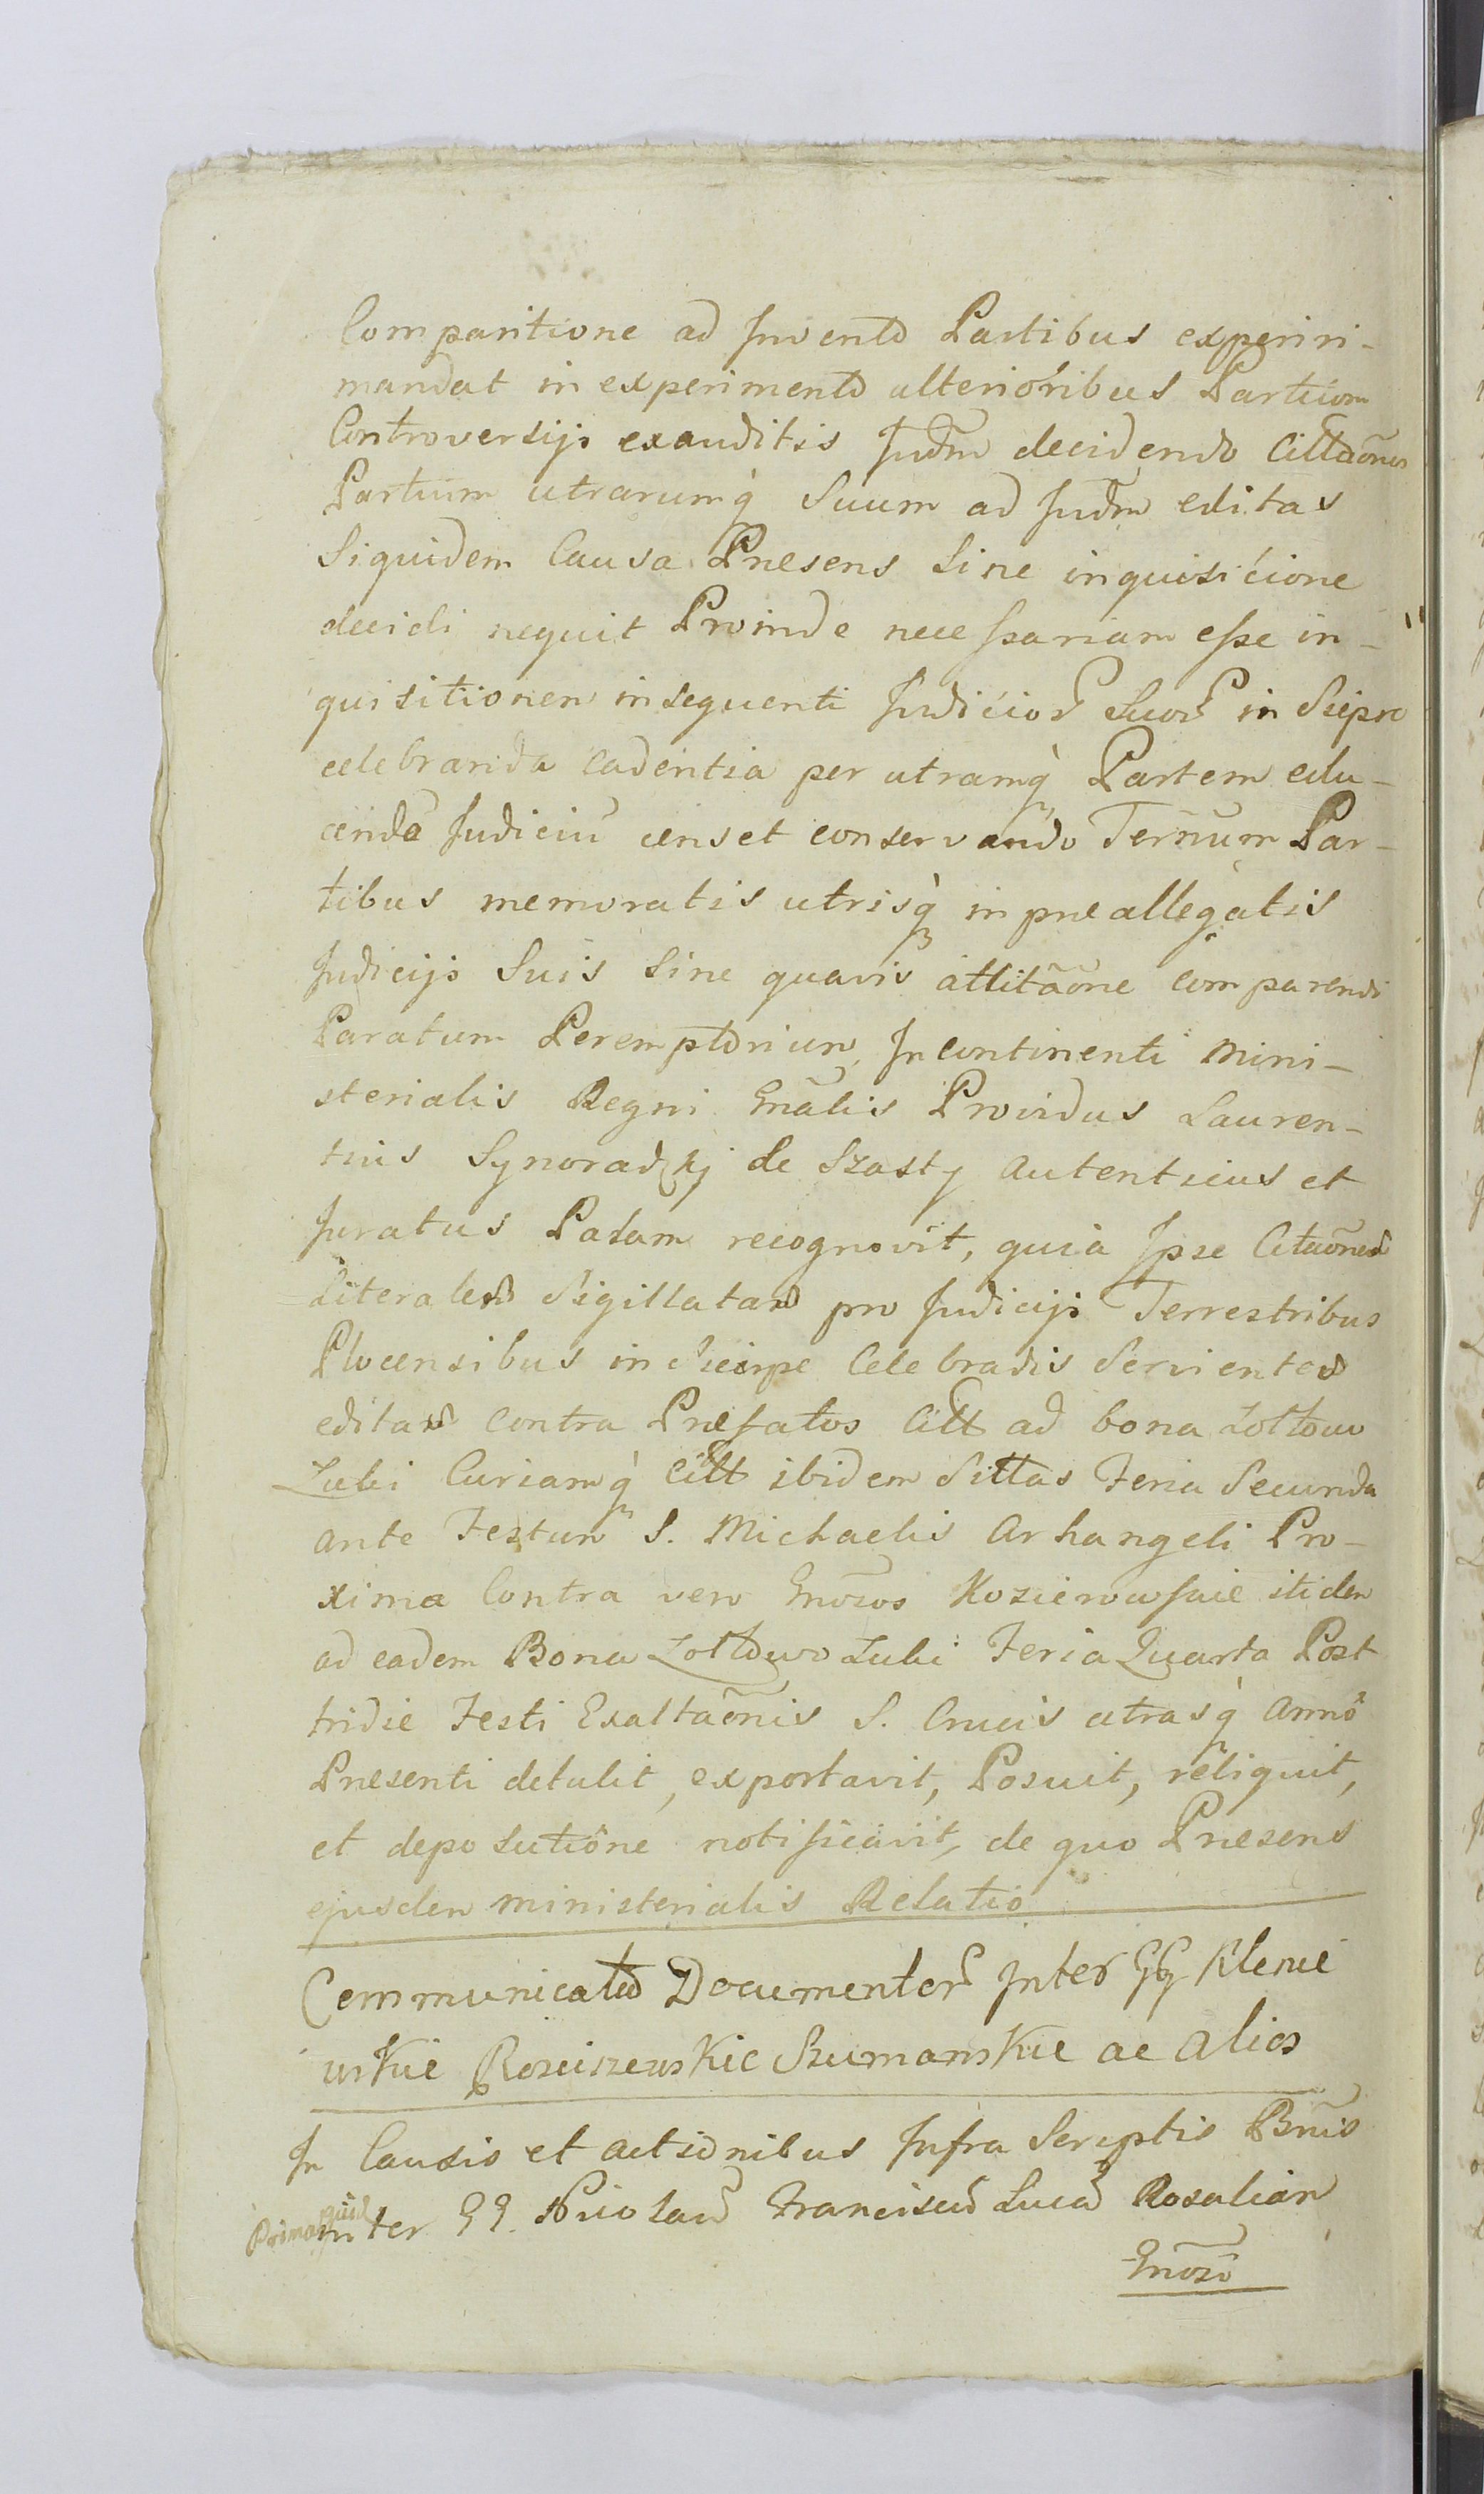 Comparitione ad Inventd Partibus experiri-
mandat in experimento ulterioribus Partium
Controversijs exauditis Judm̃ decidendo Cittaõnes
Partium utrarumq̀ Suum ad Judm̃ editas
Siquidem Causa Presens Sine inquisicione
decidi nequit Proinde necessariam esse in-
quisitionem insequenti Judicior Suor in Sieprc
celebranda cadentia per utramq̀ Partem edu-
cendã Judiciũ censet conservando Ternũm Par-
tibus memoratis utrisq̀ in preallegatis
Judicijs Suis Sine quavis attitaõne comparendi
Paratum Peremptorium, In continenti Mini-
sterialis Regni Gnãlis Providus Lauren-
tius Synoradzkj de Szasty Autenticus et
Juratus Palam recognovit, quia Ipse Citaõnes
Literales Sigillatas pro Judicijs Terrestribus
Plocensibus in Sieirpc Celebradis Servientes
editas contra Prefatos Citt ad bona Zottowo
Lubi Curiamq̀ Citt ibidem Sittas Feria Secunda
ante Festum S. Michaelis Arhangeli Pro-
xima Contra vero Gnõsos Kozierowscie itidem
ad eadem Bona Zottowo Lubi Feria Quarta Post
tridie Festi Exaltaõnis S. Crucis utrasq̀ Anno
Presenti detulit, exportavit, Posuit, reliquit,
et depo sutione notificavit, de quo Presens
ejusdem ministerialis Relatio
Communicatio Documentor Inter GG Klenie
wskie Rosciszewskie Szumanskie ac alios
In Causis et actionibus Infra Scriptis Bnĩs
Primo quid
inter GG. Nicolaũ Franciscũ Lucã Rosaliam
Gnõsõ